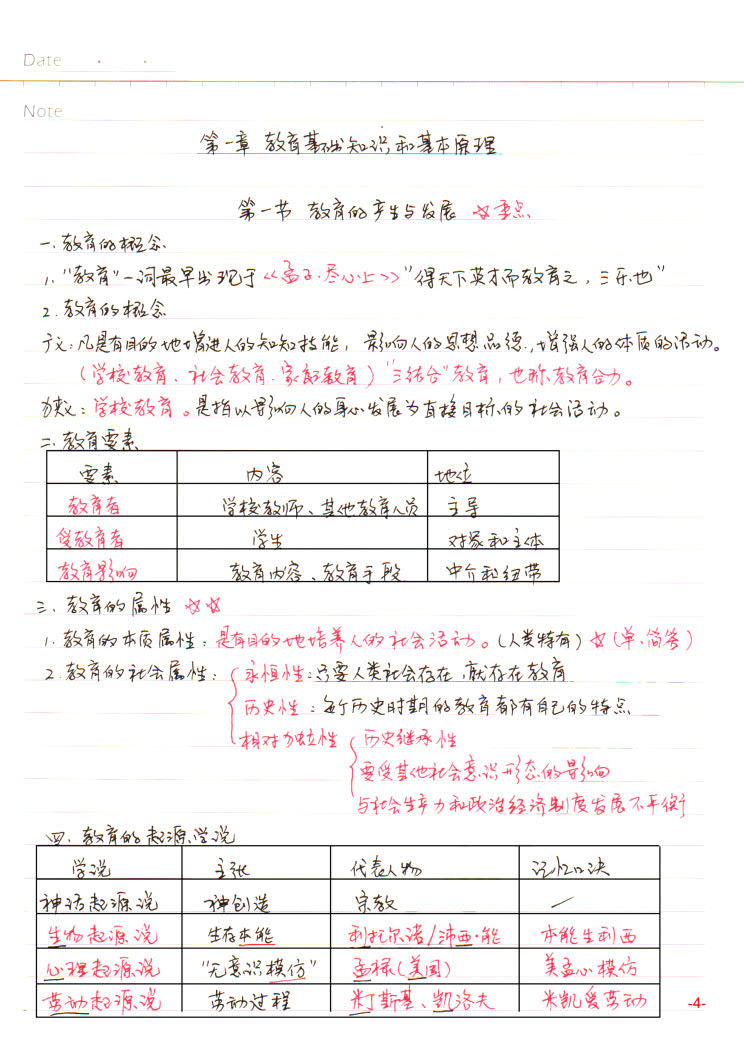 Date
Note
第一章 教育基础知识和基本原理
第一节 教育的产生与发展 ☆重点
一.教育的概念
1."教育"一词最早出现于《孟子·尽心上》"得天下英才而教育之，三乐也"
2.教育的概念
广义:凡是有目的地增进人的知知技能，影响人的思想品德，增强人的体质的活动。
(学校教育、社会教育.家庭教育)"三结合"教育，也称教育合力。
狭义:学校教育。是指以影响人的身心发展为直接目标的社会活动。
二.教育要素
要素 内容 地位
教育者 学校教师、其他教育人员 主导
受教育者 学生 对象和主体
教育影响 教育内容、教育手段 中介和纽带
三.教育的属性 ☆☆
1.教育的本质属性:是有目的地培养人的社会活动。(人类特有)☆(单、简答)
2.教育的社会属性: 永恒性:只要人类社会存在,就存在教育
历史性:每个历史时期的教育都有自己的特点
相对独立性 历史继承性
要受其他社会意识形态的影响
与社会生产力和政治经济制度发展不平衡
四.教育的起源学说
学说 主张 代表人物 记忆口决
神话起源说 神创造 宗教 —
生物起源说 生存本能 利托尔诺/沛西·能 本能生利西
心理起源说 "无意识模仿" 孟禄(美国) 美孟心模仿
劳动起源说 劳动过程 米丁斯基、凯洛夫 米凯爱劳动
-4-